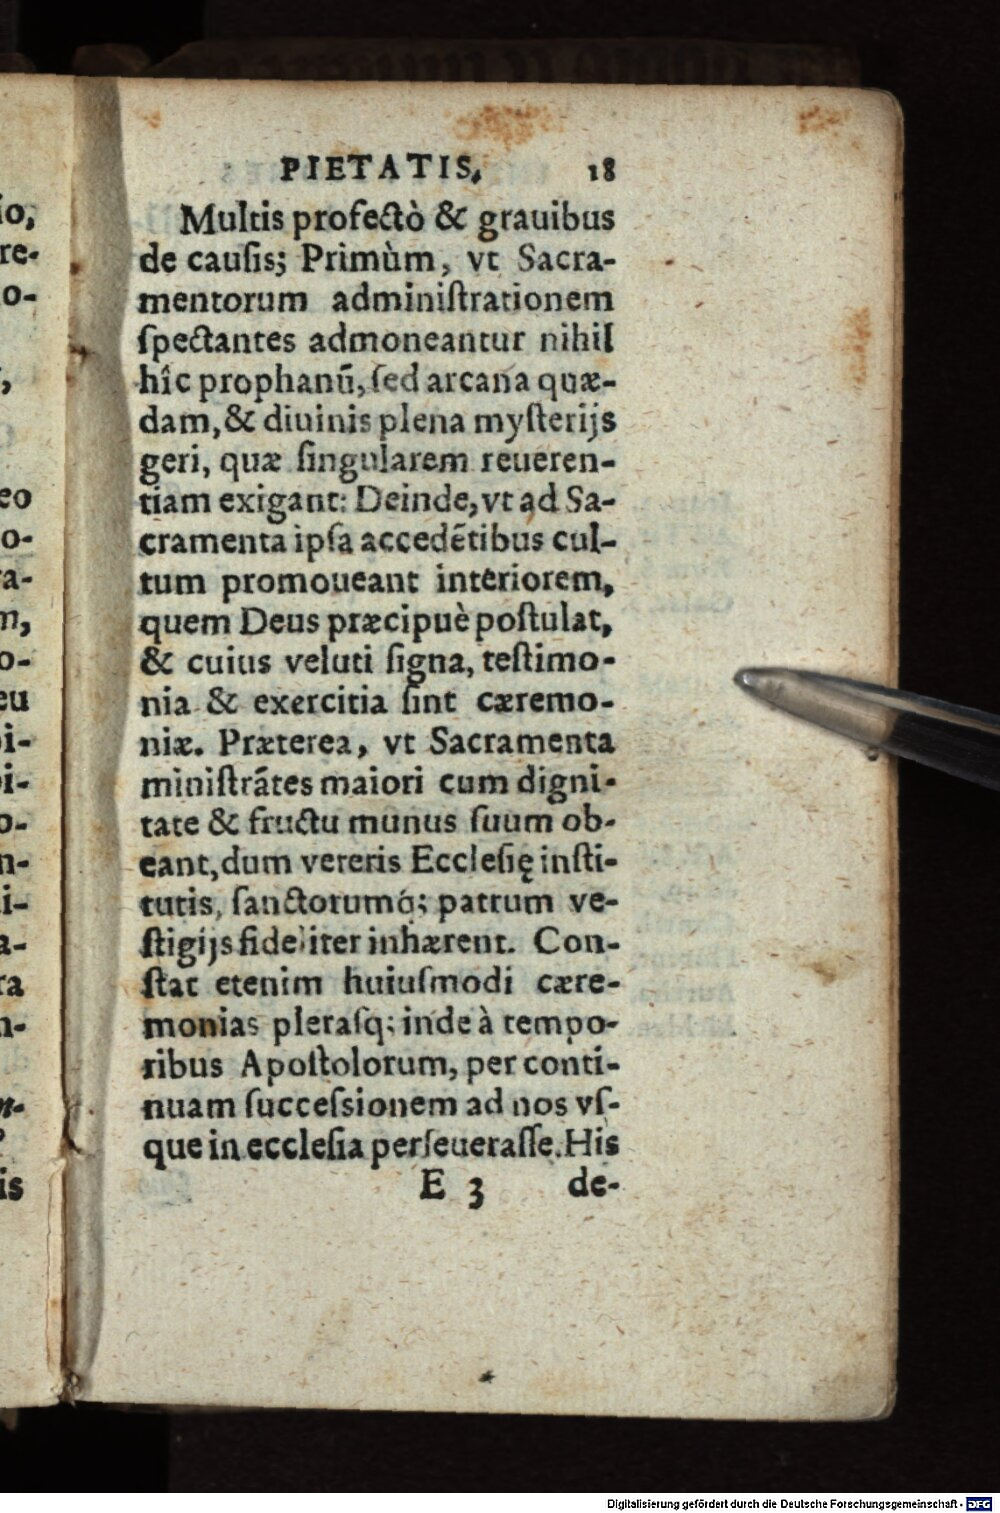 PIETATIS. 18
Multis profectò & grauibus
de cauſis; Primùm, vt Sacra-
mentorum adminiſtrationem
ſpectantes admoneantur nihil
hîc prophanū, ſed arcana quæ-
dam, & diuinis plena myſterijs
geri, quæ ſingularem reueren-
tiam exigant: Deinde, vt ad Sa-
cramenta ipſa accedētibus cul-
tum promoueant interiorem,
quem Deus præcipuè poſtulat,
& cuius veluti ſigna, teſtimo-
nia & exercitia ſint cæremo-
niæ. Præterea, vt Sacramenta
miniſtrātes maiori cum digni-
tate & fructu munus ſuum ob-
eant, dum veteris Eccleſię inſti-
tutis, ſanctorumq́; patrum ve-
ſtigijs fideliter inhærent. Con-
ſtat etenim huiuſmodi cære-
monias pleraſq; inde à tempo-
ribus Apoſtolorum, per conti-
nuam ſucceſsionem ad nos vſ-
que in eccleſia perſeueraſſe. His
E 3 de-
io,
re-
o-
,
eo
o-
ra-
m,
o-
eu
i-
i-
o-
n-
i-
a-
ra
n-
n-
?
is
Digitalisierung gefördert durch die Deutsche Forschungsgemeinschaft - DFG